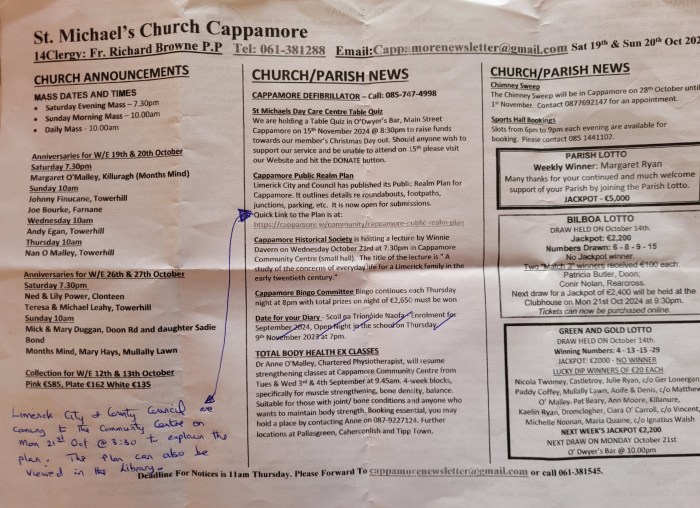 St. Michael's Church Cappamore
14Clergy: Fr. Richard Browne P.P Tel: 061-381288 Email:Cappamorenewsletter@gmail.com Sat 19th & Sun 20th Oct 202
CHURCH ANNOUNCEMENTS
MASS DATES AND TIMES
• Saturday Evening Mass – 7.30pm
• Sunday Morning Mass – 10.00am
• Daily Mass - 10.00am
Anniversaries for W/E 19th & 20th October
Saturday 7.30pm
Margaret O'Malley, Killuragh (Months Mind)
Sunday 10am
Johnny Finucane, Towerhill
Joe Bourke, Farnane
Wednesday 10am
Andy Egan, Towerhill
Thursday 10am
Nan O Malley, Towerhill
Anniversaries for W/E 26th & 27th October
Saturday 7.30pm
Ned & Lily Power, Clonteen
Teresa & Michael Leahy, Towerhill
Sunday 10am
Mick & Mary Duggan, Doon Rd and daughter Sadie
Bond
Months Mind, Mary Hays, Mullally Lawn
Collection for W/E 12th & 13th October
Pink €585, Plate €162 White €135
Limerick City & County Council are
coming to the Community Centre on
Mon 21st Oct @ 3:30 to explain the
plan. The plan can also be
viewed in the Library.
CHURCH/PARISH NEWS
CAPPAMORE DEFIBRILLATOR – Call: 085-747-4998
St Michaels Day Care Centre Table Quiz
We are holding a Table Quiz in O'Dwyer's Bar, Main Street
Cappamore on 15th November 2024 @ 8:30pm to raise funds
towards our member's Christmas Day Out. Should anyone wish to
support our service and be unable to attend on 15th please visit
our Website and hit the DONATE button.
Cappamore Public Realm Plan
Limerick City and Council has published its Public Realm Plan for
Cappamore. It outlines details re roundabouts, footpaths,
junctions, parking, etc. It is now open for submissions.
Quick Link to the Plan is at:
https://cappamore.ie/community/cappamore-public-realm-plan
Cappamore Historical Society is hosting a lecture by Winnie
Davern on Wednesday October 23rd at 7.30pm in Cappamore
Community Centre (small hall). The title of the lecture is " A
study of the concerns of everyday life for a Limerick family in the
early twentieth century."
Cappamore Bingo Committee Bingo continues each Thursday
night at 8pm with total prizes on night of €2,650 must be won
Date for your Diary - Scoil na Tríonóide Naofa - Enrolment for
September 2024, Open Night in the school on Thursday,
9th November 2023 at 7pm.
TOTAL BODY HEALTH EX CLASSES
Dr Anne O'Malley, Chartered Physiotherapist, will resume
strengthening classes at Cappamore Community Centre from
Tues & Wed 3rd & 4th September at 9.45am. 4-week blocks,
specifically for muscle strengthening, bone density, balance.
Suitable for those with joint/ bone conditions and anyone who
wants to maintain body strength. Booking essential, you may
hold a place by contacting Anne on 087-9227124. Further
locations at Pallasgreen, Caherconlish and Tipp Town.
CHURCH/PARISH NEWS
Chimney Sweep
The Chimney Sweep will be in Cappamore on 28th October until
1st November. Contact 0877692147 for an appointment.
Sports Hall Bookings
Slots from 6pm to 9pm each evening are available for
booking. Please contact 085 1441102.
PARISH LOTTO
Weekly Winner: Margaret Ryan
Many thanks for your continued and much welcome
support of your Parish by joining the Parish Lotto.
JACKPOT - €5,000
BILBOA LOTTO
DRAW HELD ON October 14th.
Jackpot: €2,200
Numbers Drawn: 6 - 8 - 9 - 15
No Jackpot winner.
Two "Match 2" winners received €100 each:
Patricia Butler, Doon;
Conir Nolan, Rearcross.
Next draw for a Jackpot of €2,400 will be held at the
Clubhouse on Mon 21st Oct 2024 at 9:30pm.
Tickets can now be purchased online.
GREEN AND GOLD LOTTO
DRAW HELD ON October 14th.
Winning Numbers: 4 - 13 -15 -29
JACKPOT: €2000 - NO WINNER
LUCKY DIP WINNERS OF €20 EACH
Nicola Twomey, Castletroy, Julie Ryan, c/o Ger Lonergan
Paddy Coffey, Mullally Lawn, Aoife & Denis, c/o Matthew
O' Malley, Pat Beary, Ann Moore, Killanure,
Kaelin Ryan, Dromclogher, Ciara O' Carroll, c/o Vincent,
Michelle Noonan, Maria Quaine, c/o Ignatius Walsh
NEXT WEEK'S JACKPOT €2,200
NEXT DRAW ON MONDAY October 21st
O' Dwyer's Bar @ 10.00pm
Deadline For Notices is 11am Thursday, Please Forward To cappamorenewsletter@gmail.com or call 061-381545.